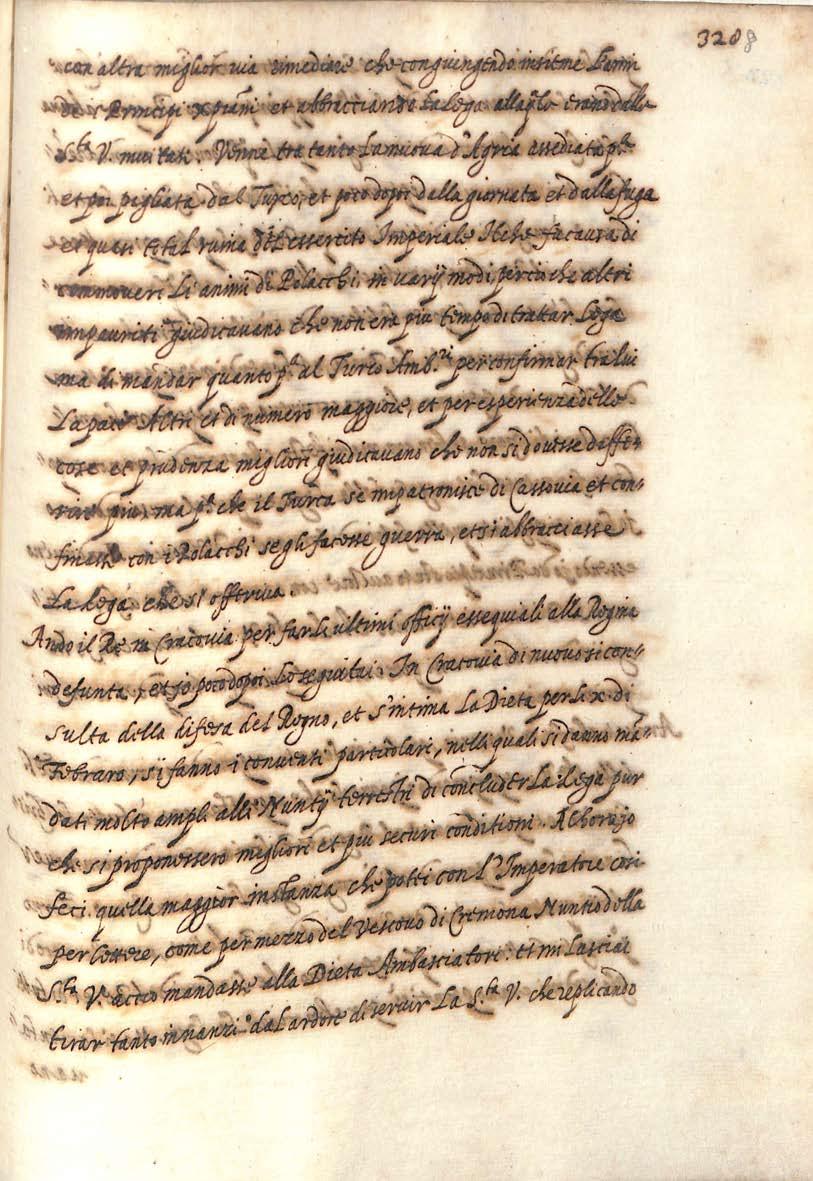 3208
con altra miglior via rimediare che congiungendo insieme l'armi
de Principi xpiani et abbracciando la lega alla qle erano dalla
S.tà V. invitati. Venne tra tanto la nuova d'Agria assediata p.a
et poi pigliata dal Turco, et poco dopoi della giornata et dalla fuga
et quasi total ruina del essercito Imperiale Il che fu causa di
commovere li animi di Polacchi, in varij modi, percioche altri
impauriti giudicavano che non era più tempo di trattar lega
ma di mandar quanto p.a al Turco Amb.ri per confirmar tra lui
la pace Altri et di numero maggiore, et per esperienza delle
cose et prudenza migliori giudicavano che non si dovesse daffe-
rire più, ma p.a che il Turca se impatronisce di Cassovia et con-
finasse con i Polacchi se gli facesse guerra, et si abbracciasse
la lega che si offeriva.
Andò il Re in Cracovia per far li ultimi officij essequiali alla Regina
defunta, et io poco dopoi lo seguitai. In Cracovia di nuovo si con-
sulta della difesa del Regno, et s'intima la Dieta per li x di
Febraro, si fanno i conventi particolari, nelli quali si danno mã-
dati molto ampli alli Nuntij terrestri di concluder la lega pur
che si proponessero migliori et più securi conditioni. Alhora jo
feci quella maggior instanza che potei con l'Imperatore cosi
per lettere, come per mezzo del Vescovo di Cremona Nuntio della
S.tà V. acciò mandasse alla Dieta Ambasciatori: et mi lasciai
tirar tanto innanzi dal ardore di servir la S.tà V. che replicando